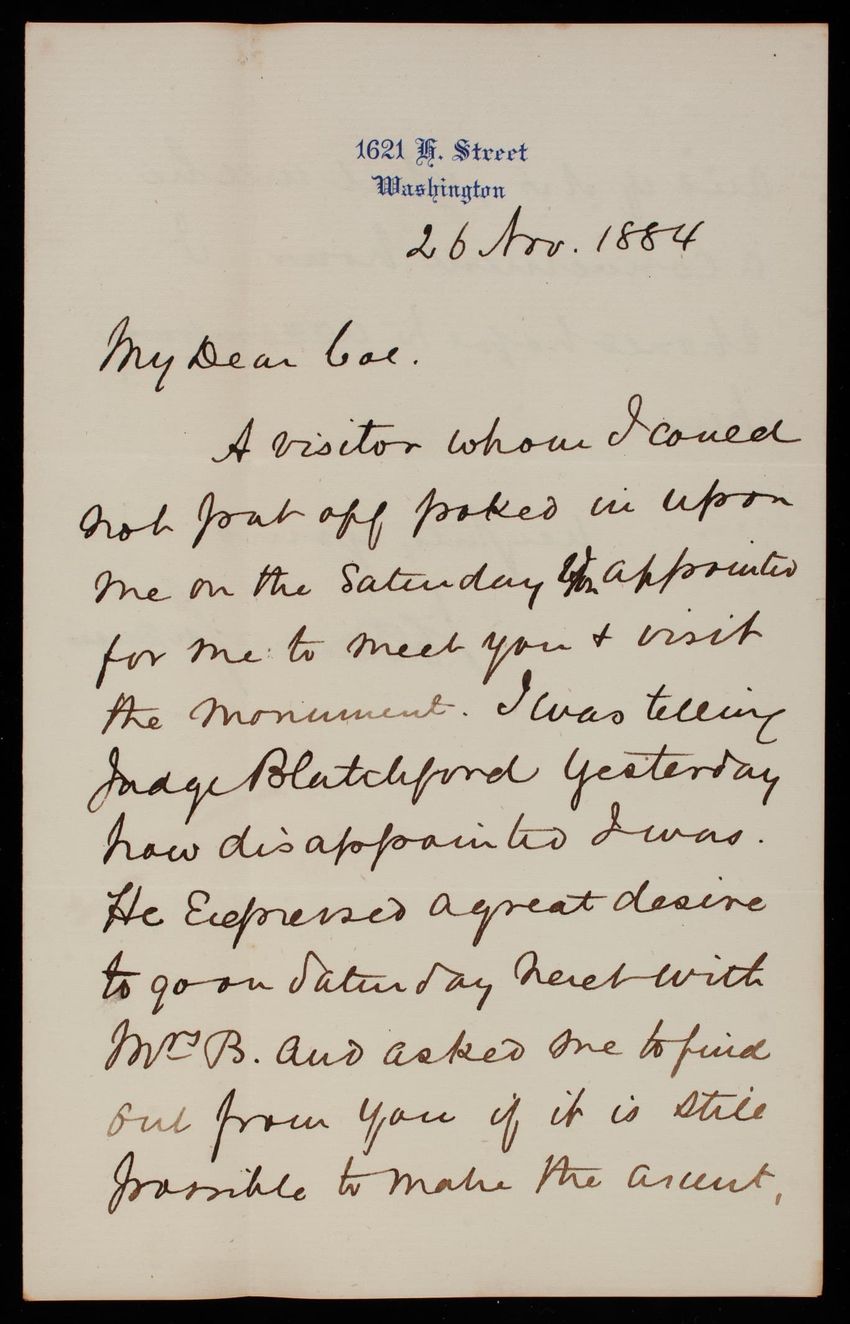 1621 H. Street
Washington
26 Nov. 1884
My Dear Col.
A visitor whom I could
not put off poked in upon
me on the Saturday you appointed
for me to meet you & visit
the monument. I was telling
Judge Blatchford yesterday
how disappointed I was.
He Expressed a great desire
to go on Saturday next with
Mrs B. and asked me to find
out from you if it is still
possible to make the ascent,